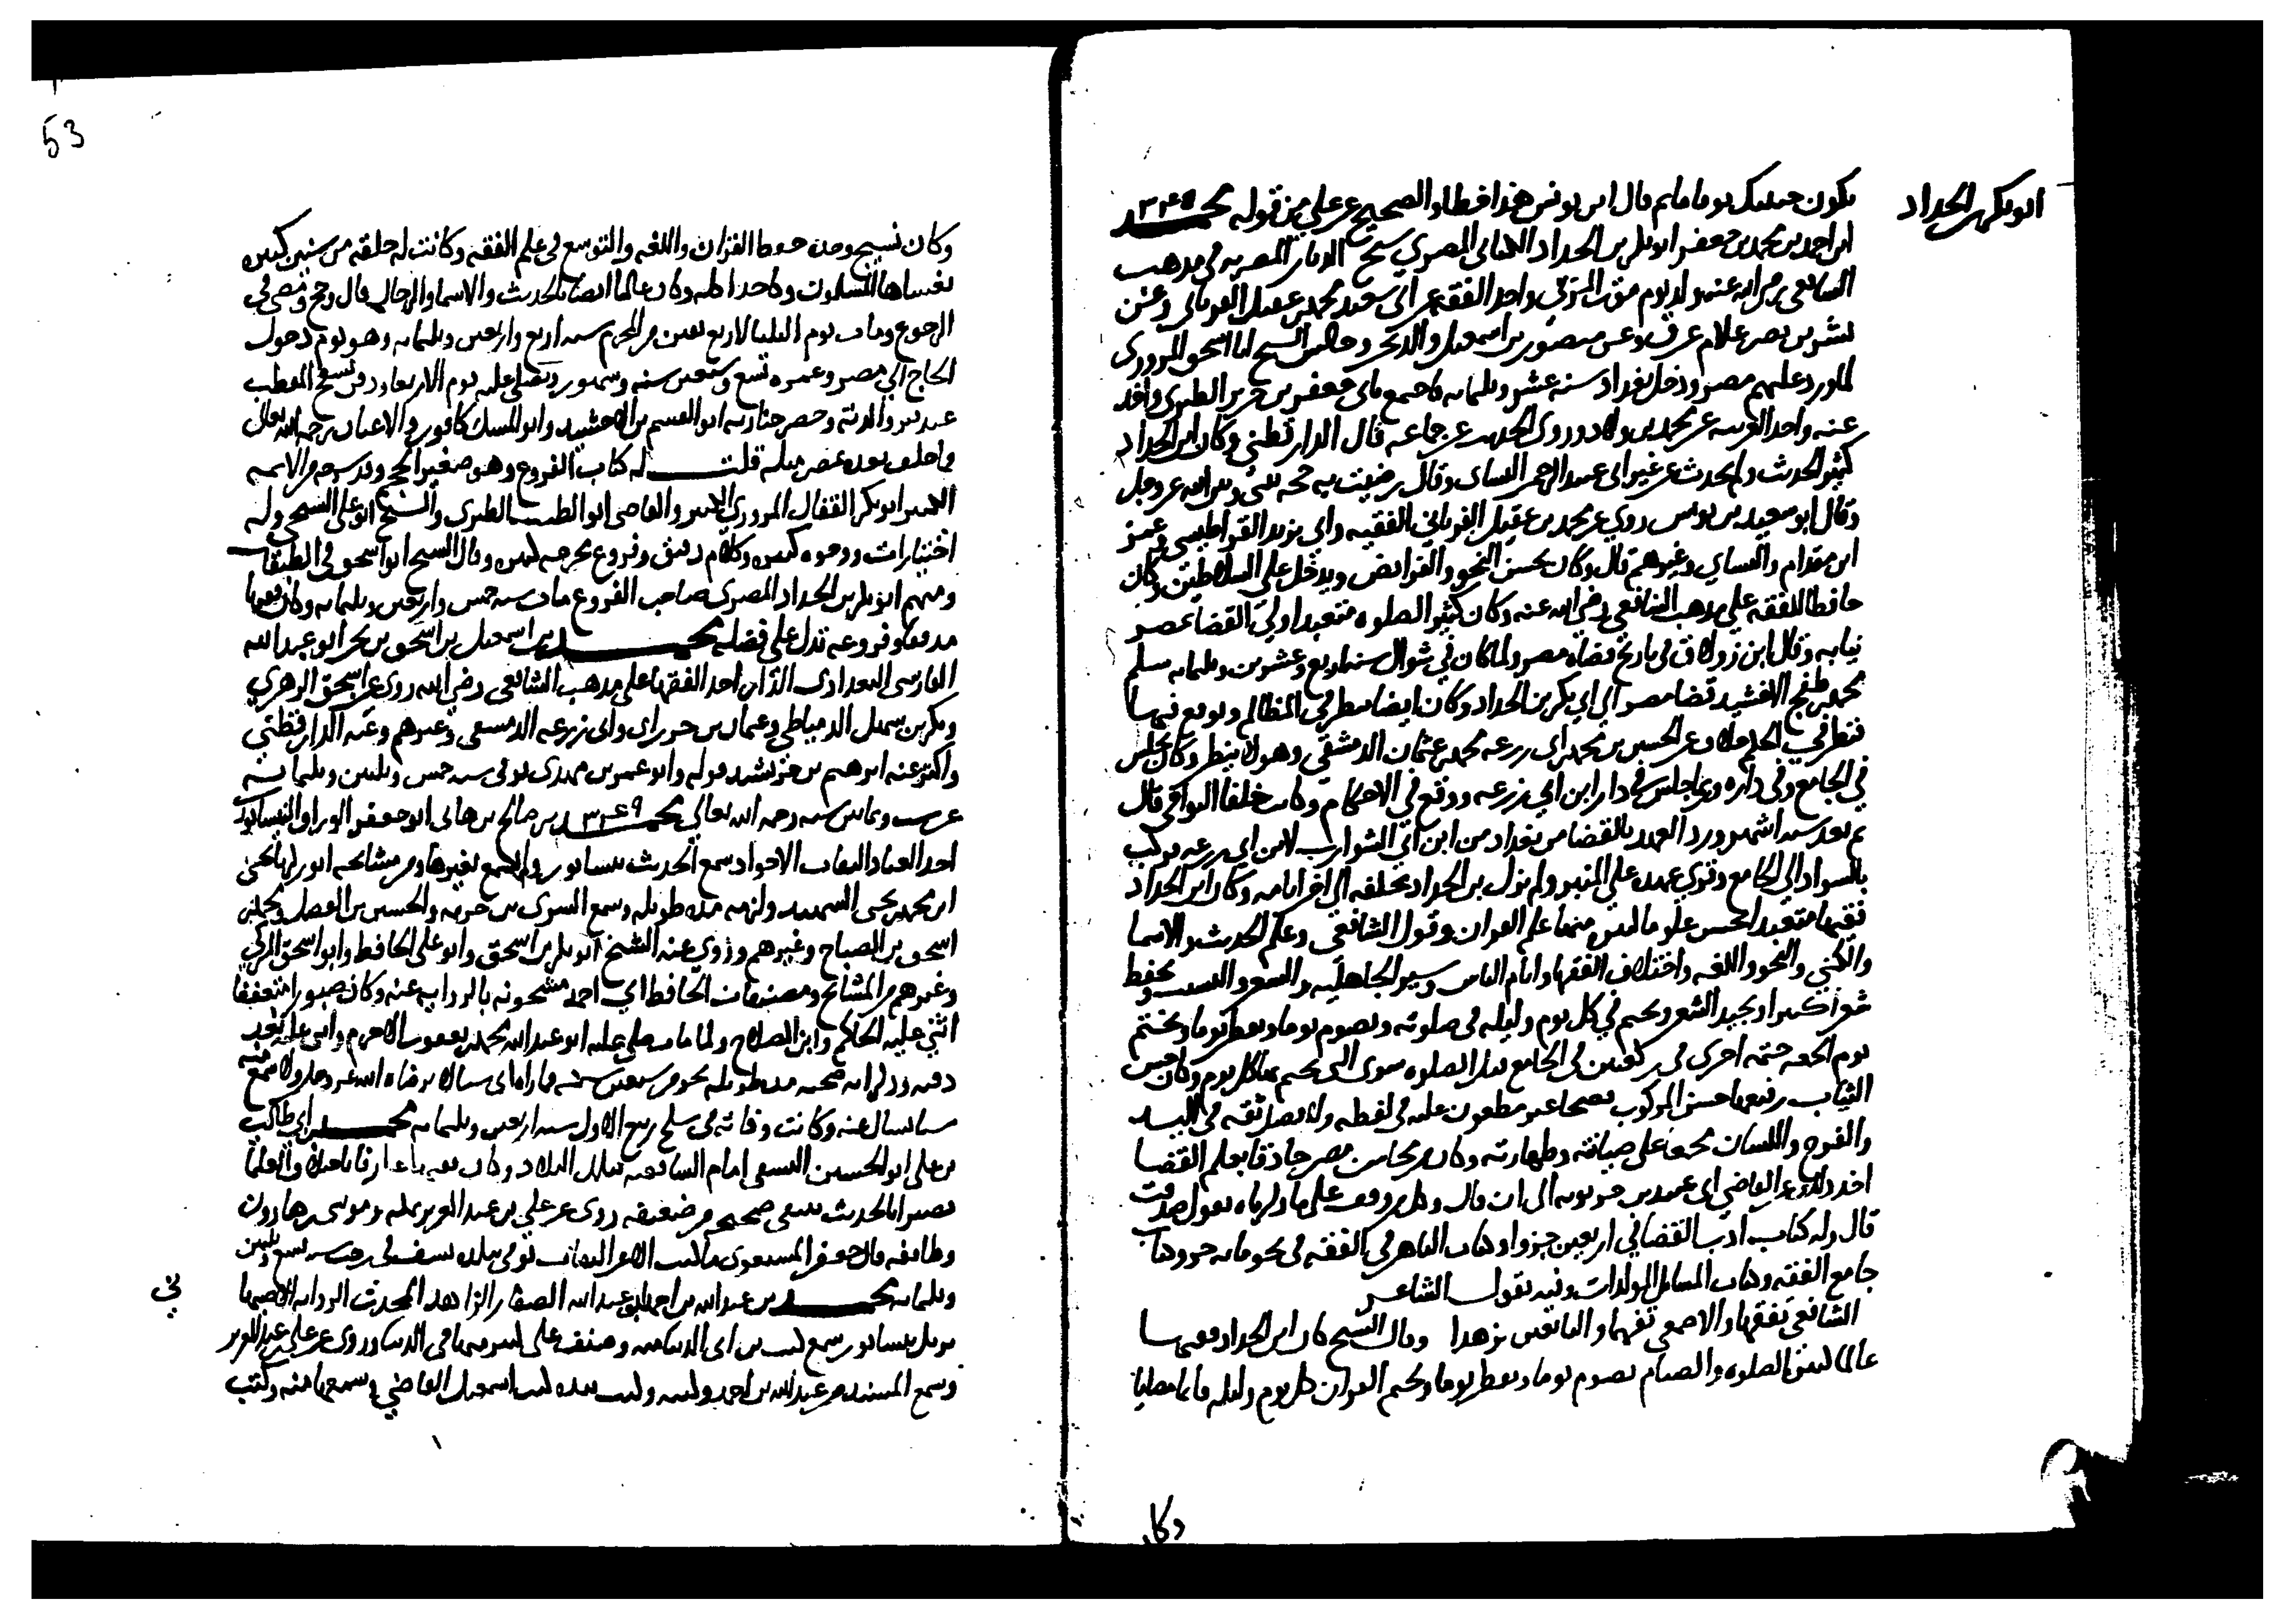 ابو بكر بن الحداد
يكون حينئذ يوما ما ثم قال ابن يونس هذا خطا والصحيح عن علي من قوله محمد
ابن احمد بن محمد بن جعفر ابو بكر بن الحداد الكناني المصري شيخ الديار المصريه في مذهب
الشافعي رضي الله عنه ولد يوم موت المزني واخذ الفقه عن ابي سعيد محمد بن عقيل الفريابي وعن
بشر بن نصر غلام عرق وعن منصور بن اسمعيل والد بحر وجالس الشيخ ابا اسحق المروزي
لما ورد عليهم مصر ودخل بغداد سنه عشر وثلثمايه فاجتمع بابي جعفر بن جرير الطبري واخذ
عنه واخذ العربيه عن محمد بن ولاد وروى الحديث عن جماعه قال الدارقطني وكان ابن الحداد
كثير الحديث ولم يحدث عن غير ابي عبد الرحمن النساي وقال رضيت به حجه بيني وبين الله عز وجل
وقال ابو سعيد بن يونس روي عن محمد بن عقيل الفريابي الفقيه وابي يزيد القراطيسي وعمر
ابن مقدام والنساي وغيرهم قال وكان يحسن النحو والفرايض ويدخل على السلاطين وكان
حافظا للفقه علي مذهب الشافعي رضي الله عنه وكان كثير الصلوه متعبدا ولي القضا بمصر
نيابه وقال ابن زولاق في تاريخ قضاه مصر ولما كان في شوال سنه اربع وعشرين وثلثمايه سلم
محمد بن طغج الاخشيد قضا مصر الي ابي بكر بن الحداد وكان ايضا ينظر في المظالم ويوقع فيها
فنظر في الحكم خلافه عن الحسين بن محمد ابي زرعه محمد بن عثمان الدمشقي وهو لا ينظر وكان يجلس
في الجامع وفي داره وربما جلس في دار ابن ابي زرعه ووقع في الاحكام وكاتب خلفا النواحي قال
ثم بعد سته اشهر ورد العهد بالقضا من بغداد من ابن ابي الشوارب لابن ابي زرعه فركب
بالسواد الي الجامع وقري عهده علي المنبر ولم يزل ابن الحداد يخلفه الى اخر ايامه وكان ابن الحداد
فقيها متعبدا يحسن علوما كثيره منها علم القران وقول الشافعي وعلم الحديث والاسما
والكني والنحو واللغه واختلاف الفقها وايام الناس وسير الجاهليه والشعر والنسب ويحفظ
شعرا كثيرا ويجيد الشعر ويختم في كل يوم وليله في صلوته ويصوم يوما ويفطر يوما ويختم
يوم الجمعه ختمه اخرى في ركعتين في الجامع قبل الصلوه سوى التي يختمها كل يوم وكان حسن
الثياب رفيعها حسن المركوب فصيحا غير مطعون عليه في لفظه ولا فضل ثقه في اليد
والفرج واللسان مجمعا على صيانته وطهارته وكان من محاسن مصر حاذقا بعلم القضا
اخذ ذلك عن القاضي ابي عبيد بن حربويه الى ان قال وكل من وقف على ما ذكرناه يقول صدقت
قال وله كتاب ادب القضا في اربعين جزوا وكتاب الباهر في الفقه في نحو مايه جزو وكتاب
جامع الفقه وكتاب المسايل المولدات وفيه يقول الشاعر
الشافعي تفقها والاصمعي تفهما والتابعين تزهدا وقال المسبحي كان ابن الحداد فقيها
عالما كثير الصلوه والصيام يصوم يوما ويفطر يوما ويختم القران كل يوم وليله قايما مصليا
وكان
53
وكان نسيج وحده في حفظ القران واللغه والتوسع في علم الفقه وكانت له حلقه من سنين كثيره
يغشاها المسلمون وكان جدا كله وكان عالما ايضا بالحديث والاسما والرجال قال وحج ومرض في
الرجوع ومات يوم الثلثا لاربع بقين من المحرم سنه اربع واربعين وثلثمايه وهو يوم دخول
الحاج الي مصر وعمره تسع وسبعين سنه وشهور وصلي عليه يوم الاربعا ودفن بسفح المقطم
عند قبر والدته وحضر جنازته ابو القسم بن الاخشيد وابو المسك كافور والاعيان رحمه الله تعالى
وما خلف بعده بمصر مثله قلت له كتاب الفروع وهو صغير الحجم وقد شرحه من الايمه
الكبير ابو بكر القفال المروزي الكبير والقاضي ابو الطيب الطبري والشيخ ابو علي السنجي وله
اختيارات ووجوه كثيره وكلام دقيق وفروع مخرجه كثيره وقال الشيخ ابو اسحق في الطبقات
ومنهم ابو بكر بن الحداد المصري صاحب الفروع مات سنه خمس واربعين وثلثمايه وكان فقيها
مدققا وفروعه تدل على فضله محمد بن اسمعيل بن اسحق بن بحر ابو عبد الله
الفارسي البغدادي احد الفقها على مذهب الشافعي رضي الله روى عن اسحق الدبري
وبكر بن سهل الدمياطي وعثمان بن خرزاد وابي زرعه الدمشقي وغيرهم وعنه الدارقطني
واكثر عنه ابرهيم بن خرشيد قوله وابو عمر بن مهدي توفي سنه خمس وثلثين وثلثمايه
عن ست وثمانين سنه رحمه الله تعالي محمد بن صالح بن هاني ابو جعفر الوراق النيسابوري
احد العباد الثقات الاجواد سمع الحديث بنيسابور ولم يسمع بغيرها ومن مشايخه ابو زكريا يحيى
ابن محمد بن يحيى الشهيد ولزمه مده طويله وسمع السري بن خزيمه والحسين بن الفضل ومحمد بن
اسحق بن الصباح وغيرهم وروي عنه الشيخ ابو بكر بن اسحق وابو علي الحافظ وابو اسحق المزكي
وغيرهم من المشايخ ومصنفات الحافظ ابي احمد مشحونه بالروايه عنه وكان صبورا متعففا
اثني عليه الحاكم وابن الصلاح ولما مات صلي عليه ابو عبد الله محمد بن يعقوب الاخرم واثنى عليه بعد
دفنه وذكر انه صحبه مده طويله نحو من سبعين سنه فما راه اتى شيئا لا يرضاه الله عز وجل ولا سمع منه
شيئا يسال عنه وكانت وفاته في سلخ ربيع الاول سنه اربعين وثلثمايه محمد بن ابي طالب
بن علي ابو الحسين النسفي امام الشافعيه بتلك البلاد وكان فقيها عارفا باختلاف العلما
بصيرا بالحديث ينتقي صحيحه من ضعيفه روى عن علي بن عبد العزيز بمكه وموسى بن هارون
وطايفه قال جعفر المستغفري ما كتب الا عن الثقات توفي ببلده نسف في رجب سنه تسع وثلثين
وثلثمايه محمد بن عبد الله بن احمد ابو عبد الله الصفار الزاهد المحدث الراويه الاصبهاني
نزيل نيسابور سمع كتب ابن ابي الدنيا منه وصنف على كثير منها في الدنيا وروى عن علي بن عبد العزيز
وسمع المسند من عبد الله بن احمد وكتبه وكتب بيده كتب اسمعيل القاضي وسمعها منه وكتب